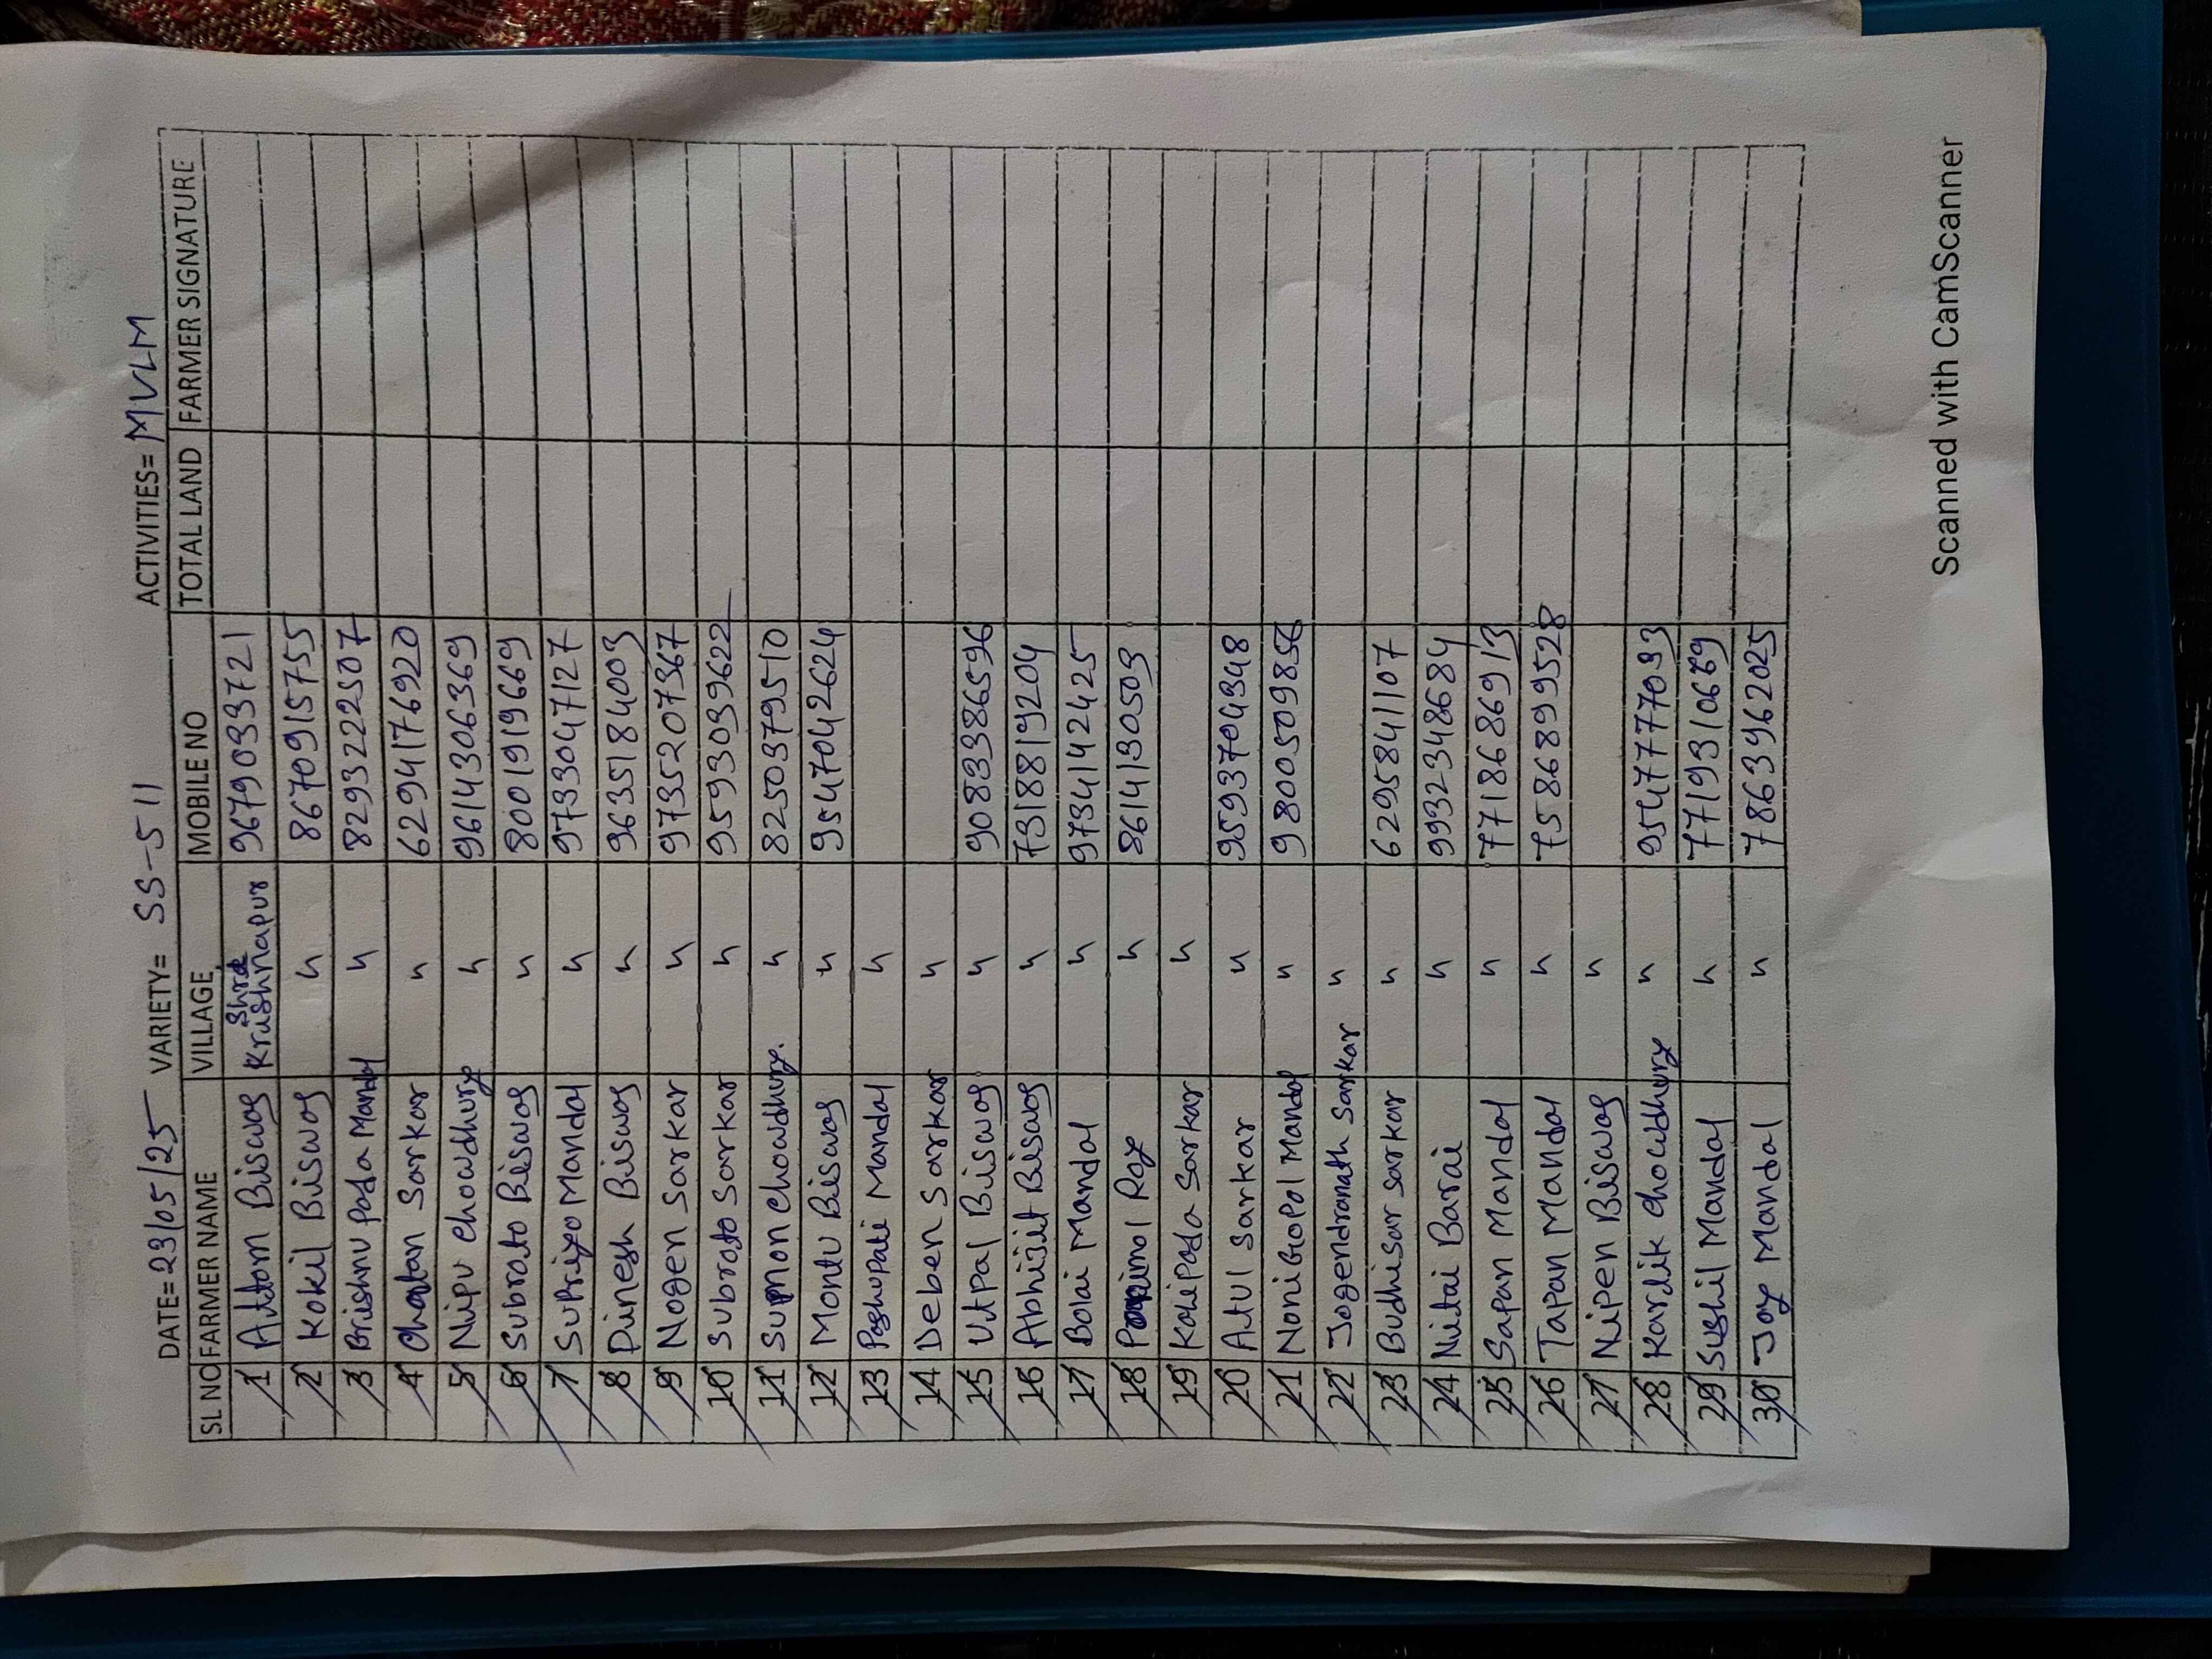 DATE= 23/05/25 VARIETY= SS-511 ACTIVITIES= MVLM
SL NO FARMER NAME VILLAGE MOBILE NO TOTAL LAND FARMER SIGNATURE
1 Attom Biswas Shree Krishnapur 9679033721
2 Kokil Biswas " 8670915755
3 Brishnu Poda Mandal " 8293222507
4 Chaotan Sarkar " 6294176920
5 Nipu Chowdhury " 9614306369
6 Subroto Biswas " 8001919669
7 Supriyo Mandal " 9733047127
8 Dinesh Biswas " 9635184003
9 Nogen Sarkar " 9735207367
10 Subroto Sarkar " 9593039622
11 Sumon Chowdhury. " 8250379510
12 Montu Biswas " 9547042624
13 Poshupati Mandal "
14 Deben Sarkar "
15 Utpal Biswas " 9083386596
16 Abhijit Biswas " 7318819204
17 Bolai Mandal " 9734142425
18 Porimol Roy " 8614130503
19 Kalipoda Sarkar "
20 Atul Sarkar " 9593704348
21 Noni Gopol Mandal " 9800509856
22 Jogendranath Sarkar "
23 Budhisar Sarkar " 6295841107
24 Nitai Barai " 9932348684
25 Sapan Mandal " 7718686913
26 Tapan Mandal " 7586899528
27 Nipen Biswas "
28 Kartik Chowdhury " 9547777033
29 Sushil Mandal " 7719310669
30 Joy Mandal " 7863962025
Scanned with CamScanner